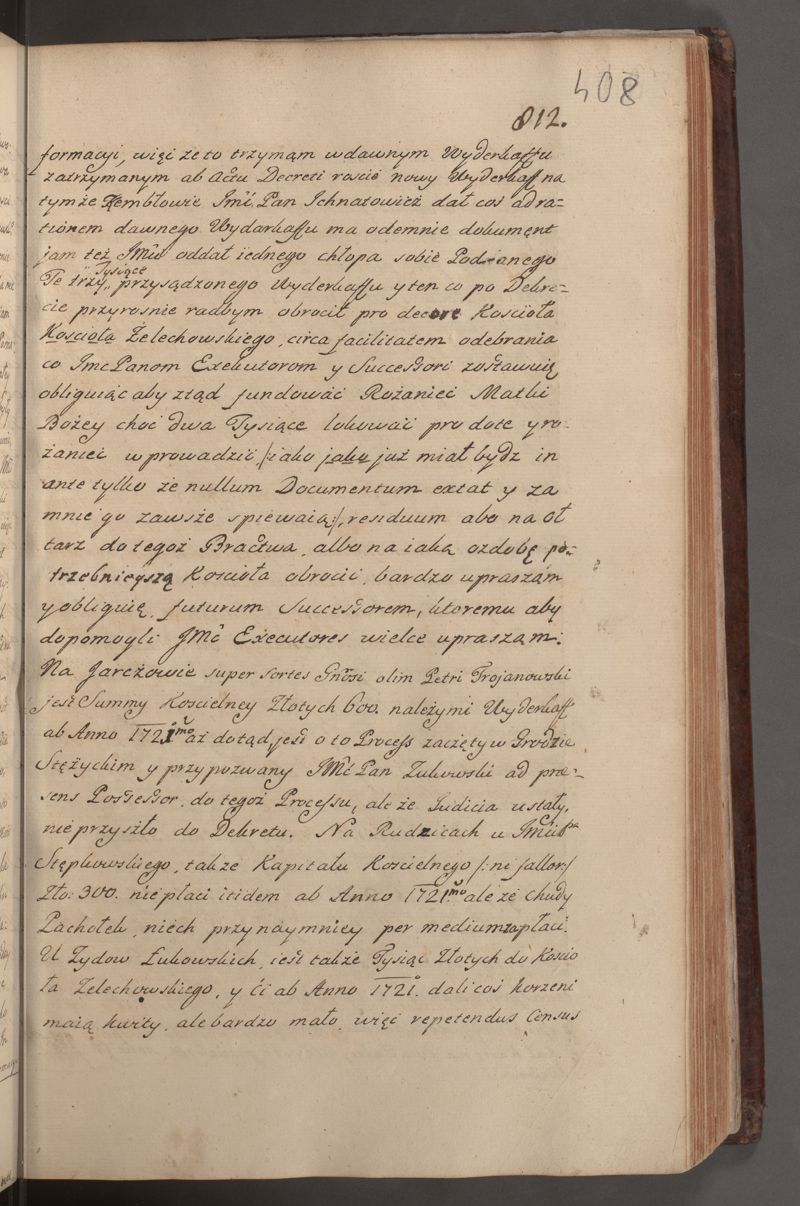 408
812.
formacyi, więc ze to trzymam w dawnym Wyderkaffu
zatrzymanym ab Actu Decreti rościć nowy Wyderkaff na
tymże Zembłowie Jmć Pan Ichnatowicz dał coś ad ra-
tionem dawnego Wyderkaffu ma odemnie dokument
jam też JMci oddał iednego chłopa sobie Poddanego
Te trzy Tysiące przysądzonego Wyderkaffu y ten co po Dekre-
cie przyrosnie radbym obrocił pro decore Kościoła
Kościoła Żelechowskiego, circa facilitatem odebrania
co Jmc Panom Exekutorom y Successori zostawuię
obliguiąc aby ztąd fundować Rożaniec Matki
Bożey choć dwa Tysiące lokować pro dote y ro-
żaniec wprowadzić, /:iako jako już miał bydz in
ante tylko że nullum Documentum extat y za
mnie go zawsze spiewaią:/, residuum abo na oł
tarz do tegoż Bractwa, albo na iaką ozdobę po-
trzebnieyszą Kościoła obrocić, bardzo upraszam
y obliguię, futurum Successorem, ktoremu aby
dopomogli JMć Executores wielce upraszam.
Na Jarczowie super sortes Gnosi olim Petri Trojanowski
jest Summy Koscielney Złotych 600. należymi Wyderkaff
ab Anno 1721mo aż dotąd, jest o to Process zaczęty w Grodzie
Stężyckim y przypozwany JMć Pan Żukowski ad præ-
sens Possessor, do tegoż Processu, ale że Iudicia ustały,
nie przyszło do Dekretu. Na Rudzicach u JMci Pa
Stępkowskiego, także Kapitału Koscielnego /:ni fallor:/
Zło: 300. niepłaci itidem ab Anno 1721mo ale że chudy
Pachołek, niech przynaymniey per medium zapłaci.
U Żydow Łukowskich, iest także Tysiąc Złotych do Koscio
ła Żelechowskiego, y ći ab Anno 1721. dali coś korzeni
maią kwity, ale bardzo mało, więc repetendus Census